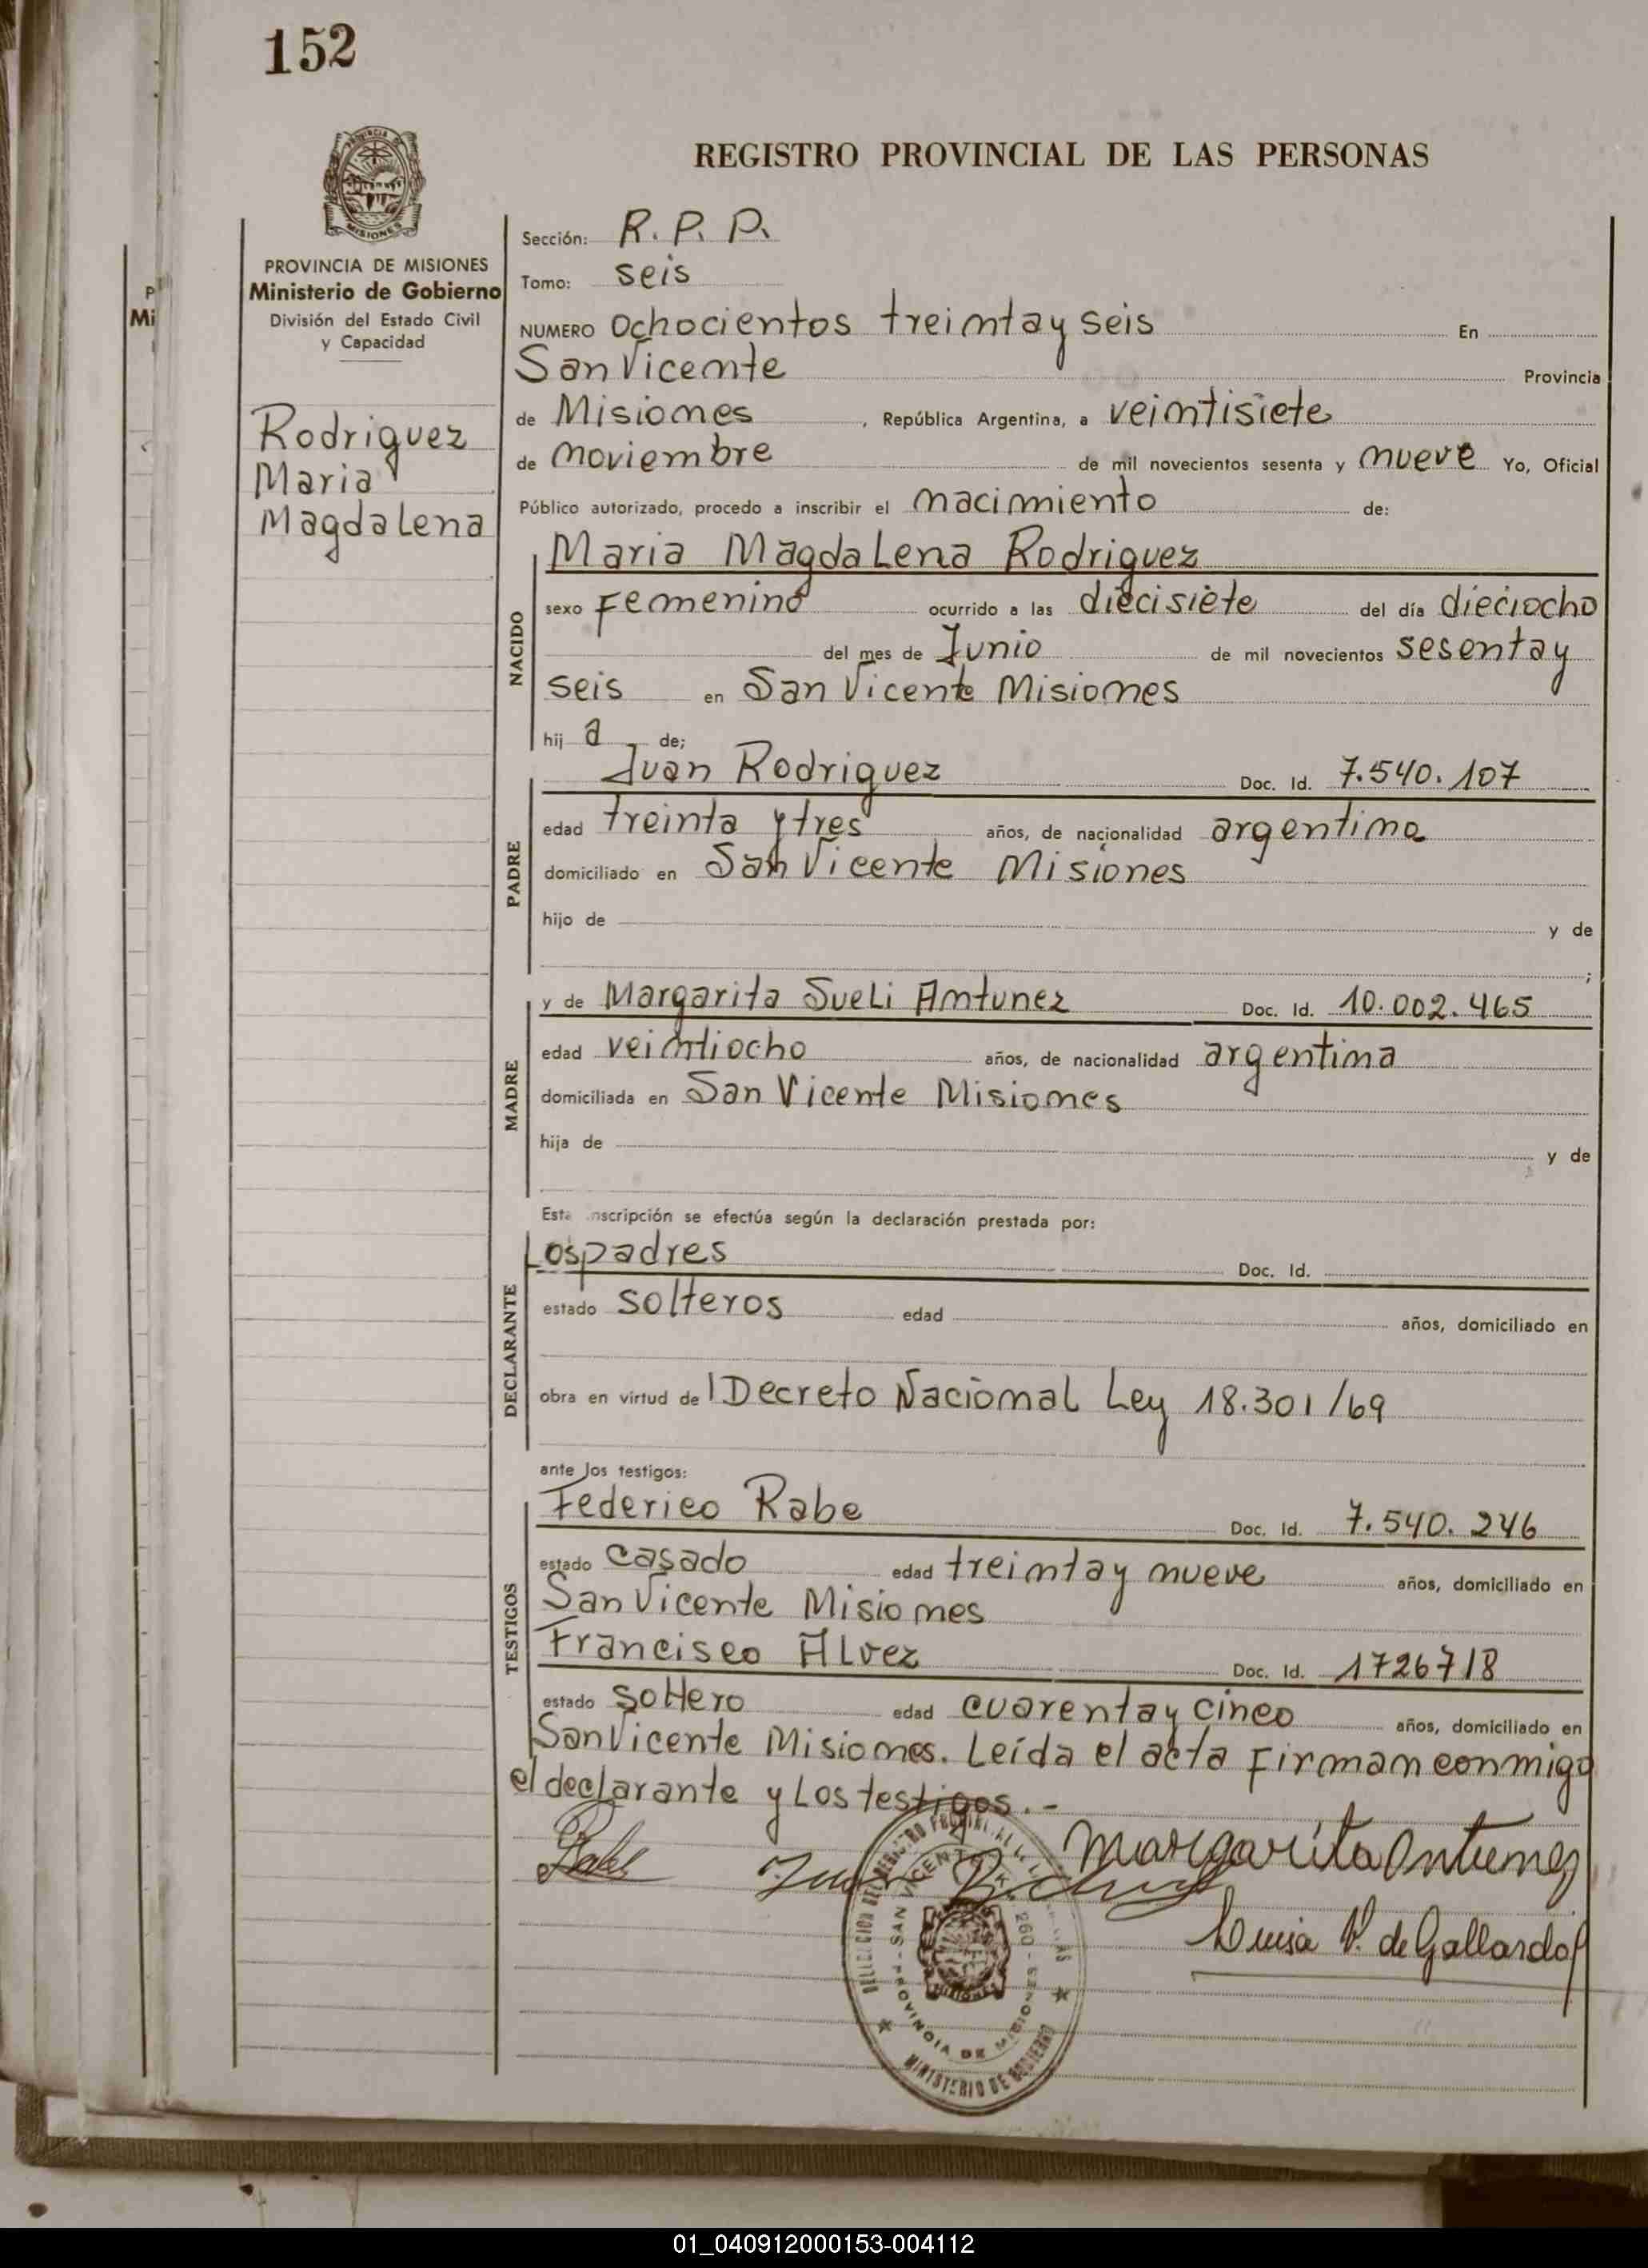 152
REGISTRO PROVINCIAL DE LAS PERSONAS
PROVINCIA DE MISIONES
Ministerio de Gobierno
División del Estado Civil
y Capacidad
Rodriguez
Maria
Magdalena
Sección: R. P. P.
Tomo: seis
NUMERO ochocientos treinta y seis En
San Vicente Provincia
de Misiones, República Argentina, a veintisiete
de noviembre de mil novecientos sesenta y nueve Yo, Oficial
Público autorizado, procedo a inscribir el nacimiento de:
NACIDO
Maria Magdalena Rodriguez
sexo Femenino ocurrido a las diecisiete del día dieciocho
del mes de Junio de mil novecientos sesenta y
seis en San Vicente Misiones
hij a de;
PADRE
Juan Rodriguez Doc. Id. 7.540.107
edad treinta y tres años, de nacionalidad argentina
domiciliado en San Vicente Misiones
hijo de y de
;
MADRE
y de Margarita Sueli Antunez Doc. Id. 10.002.465
edad veintiocho años, de nacionalidad argentina
domiciliada en San Vicente Misiones
hija de y de
Esta inscripción se efectúa según la declaración prestada por:
DECLARANTE
Los padres Doc. Id.
estado solteros edad años, domiciliado en
obra en virtud de l Decreto Nacional Ley 18.301/69
ante los testigos:
TESTIGOS
Federico Rabe Doc. Id. 7.540.246
estado casado edad treinta y nueve años, domiciliado en
San Vicente Misiones
Francisco Alvez Doc. Id. 1726718
estado soltero edad cuarenta y cinco años, domiciliado en
San Vicente Misiones. Leída el acta Firman conmigo
el declarante y Los testigos.-
Margarita Antunez
Luisa V. de Gallardo
SAN VICENTE
PROVINCIA DE MISIONES
MINISTERIO DE GOBIERNO
01_040912000153-004112